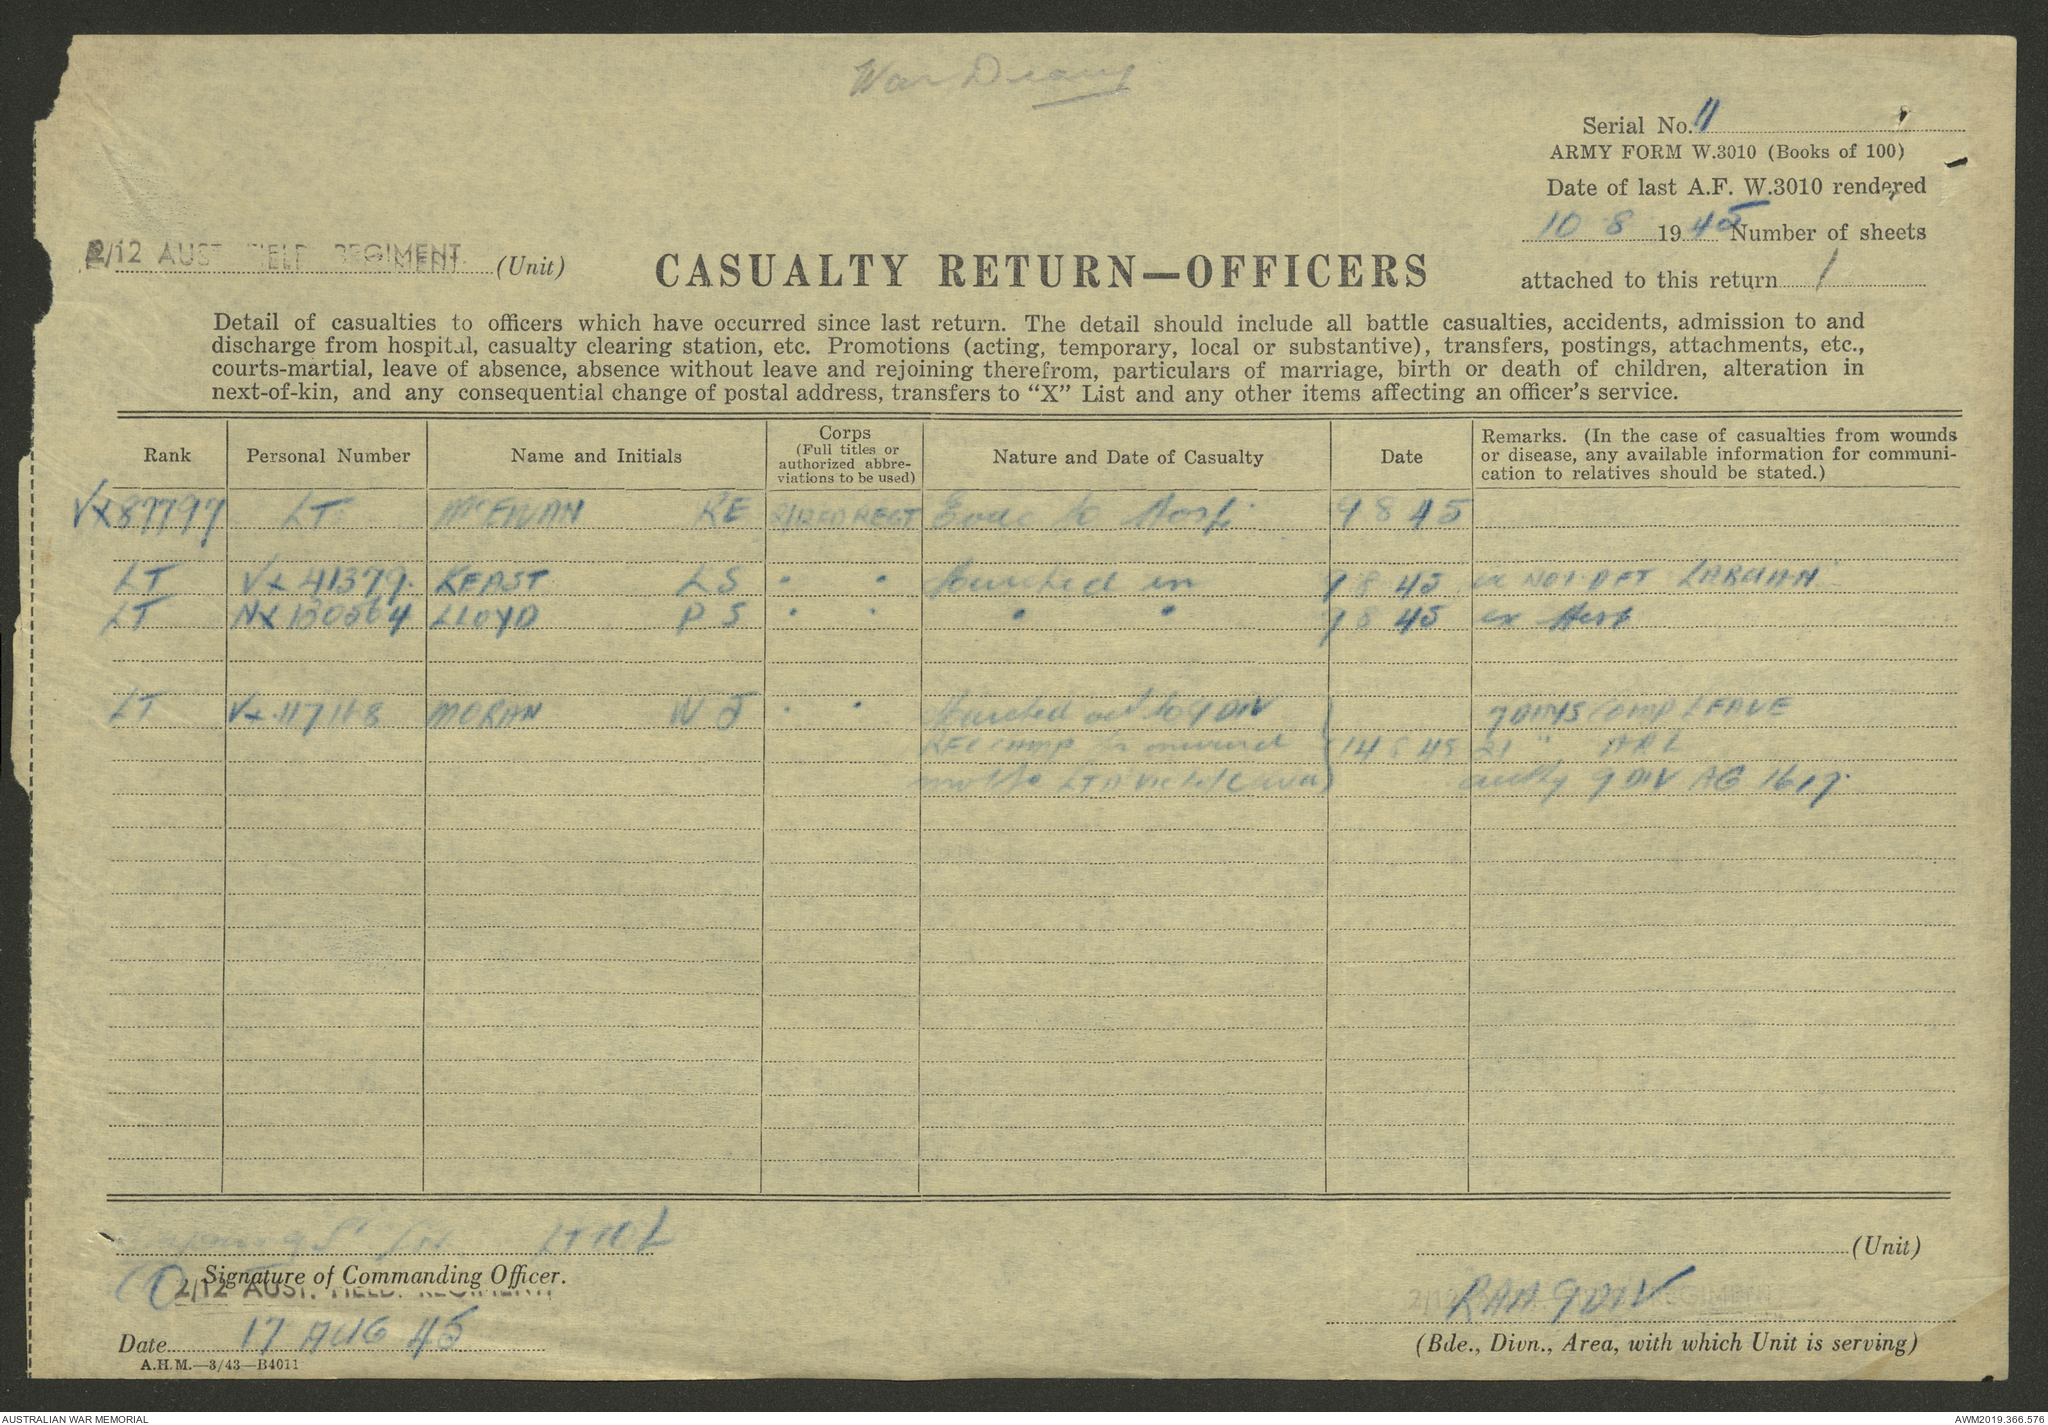 War Diary
Serial No. 11
ARMY FORM W.3010 (Books of 100)
Date of last A.F. W.3010 rendered
10 8 1945 Number of sheets
attached to this return 1
2/12 AUST. FIELD REGIMENT (Unit)
CASUALTY RETURN—OFFICERS
Detail of casualties to officers which have occurred since last return. The detail should include all battle casualties, accidents, admission to and
discharge from hospital, casualty clearing station, etc. Promotions (acting, temporary, local or substantive), transfers, postings, attachments, etc.,
courts-martial, leave of absence, absence without leave and rejoining therefrom, particulars of marriage, birth or death of children, alteration in
next-of-kin, and any consequential change of postal address, transfers to "X" List and any other items affecting an officer's service.
Rank Personal Number Name and Initials Corps (Full titles or authorized abbreviations to be used) Nature and Date of Casualty Date Remarks. (In the case of casualties from wounds or disease, any available information for communication to relatives should be stated.)
VX87797 LT McEWAN RE REGT Evac to Hosp 9 8 45
LT VX41379 KEAST LS " " Marched in 9 8 45 ex LABUAN
LT NX130564 LLOYD PS " " " " 9 8 45 ex Hosp
LT MORAN WJ " " Marched out to 9 DIV 7 DAYS COMP LEAVE
REC CAMP for onward 14 8 45 21 " ARL
authy 9 DIV AG 1617
LT COL
Signature of Commanding Officer.
CO 2/12 AUST. FIELD. REGIMENT
Date 17 AUG 45
A.H.M.—3/43—B4011
(Unit)
2/12 REGIMENT
RAA 9 DIV
(Bde., Divn., Area, with which Unit is serving)
AUSTRALIAN WAR MEMORIAL
AWM2019.366.576